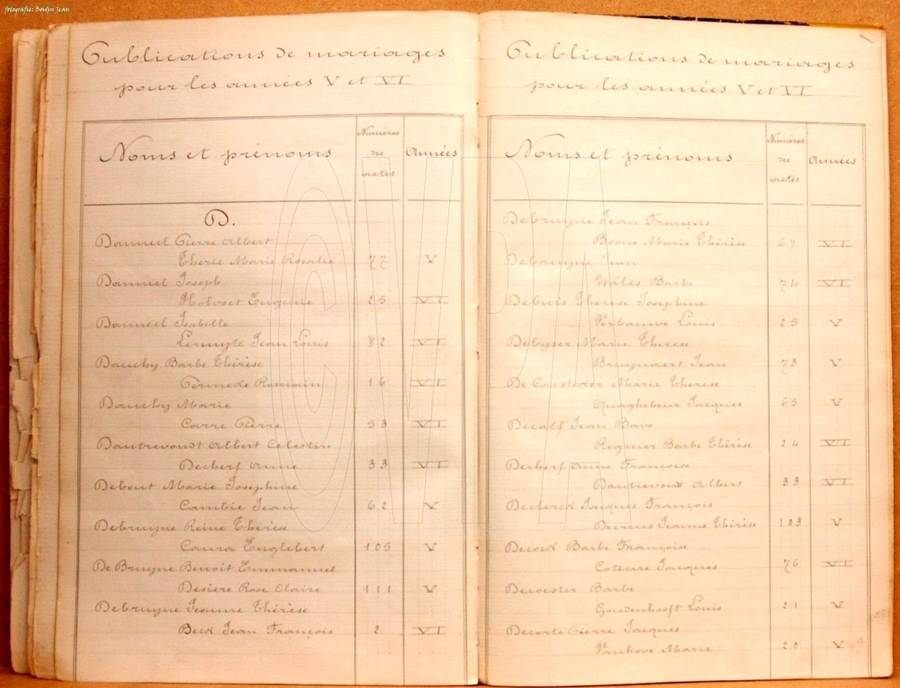 fotografie: Boidin Jean
Publications de mariages
pour les années V et VI
Noms et prénoms
Numéros
des
actes
Années
D.
Danneel Pierre Albert
Therie Marie Rosalie 77 V
Danneel Joseph
Holvoet Eugenie 25 VI
Danneel Isabelle
Lermyte Jean Louis 82 VI
Dauchy Barbe Thérèse
Romain 16 VI
Dauchy Marie
Carre Pierre 53 VI
Dautrevoust Albert Celestin
Decherf Anne 33 VI
Debout Marie Josephine
Cambie Jean 62 V
Debruyne Reine Thérèse
Englebert 105 V
De Bruyne Benoit Emmanuel
Desiere Rose Claire 111 V
Debruyne Jeanne Thérèse
Beck Jean François 2 VI
Publications de mariages
pour les années V et VI
Noms et prénoms
Numéros
des
actes
Années
Debruyne Jean François
Marie Thérèse 67 VI
Debruyne Jean
Barbe 74 VI
Debuis Therese Josephine
Verbauwe Louis 25 V
Debyser Marie Therese
Bruynaert Jean 73 V
De Marie Therese
Quaghebeur Jacques 65 V
Decalf Jean Bavo
Requier Barbe Thérèse 24 VI
Decherf Anne Françoise
Dautrevoux Albert 33 VI
Declerck Jacques François
Devreus Jeanne Thérèse 103 V
Decock Barbe Françoise
Coteure Jacques 76 VI
Barbe
Louis 21 V
Pierre Jacques
Vanhove Marie 20 V